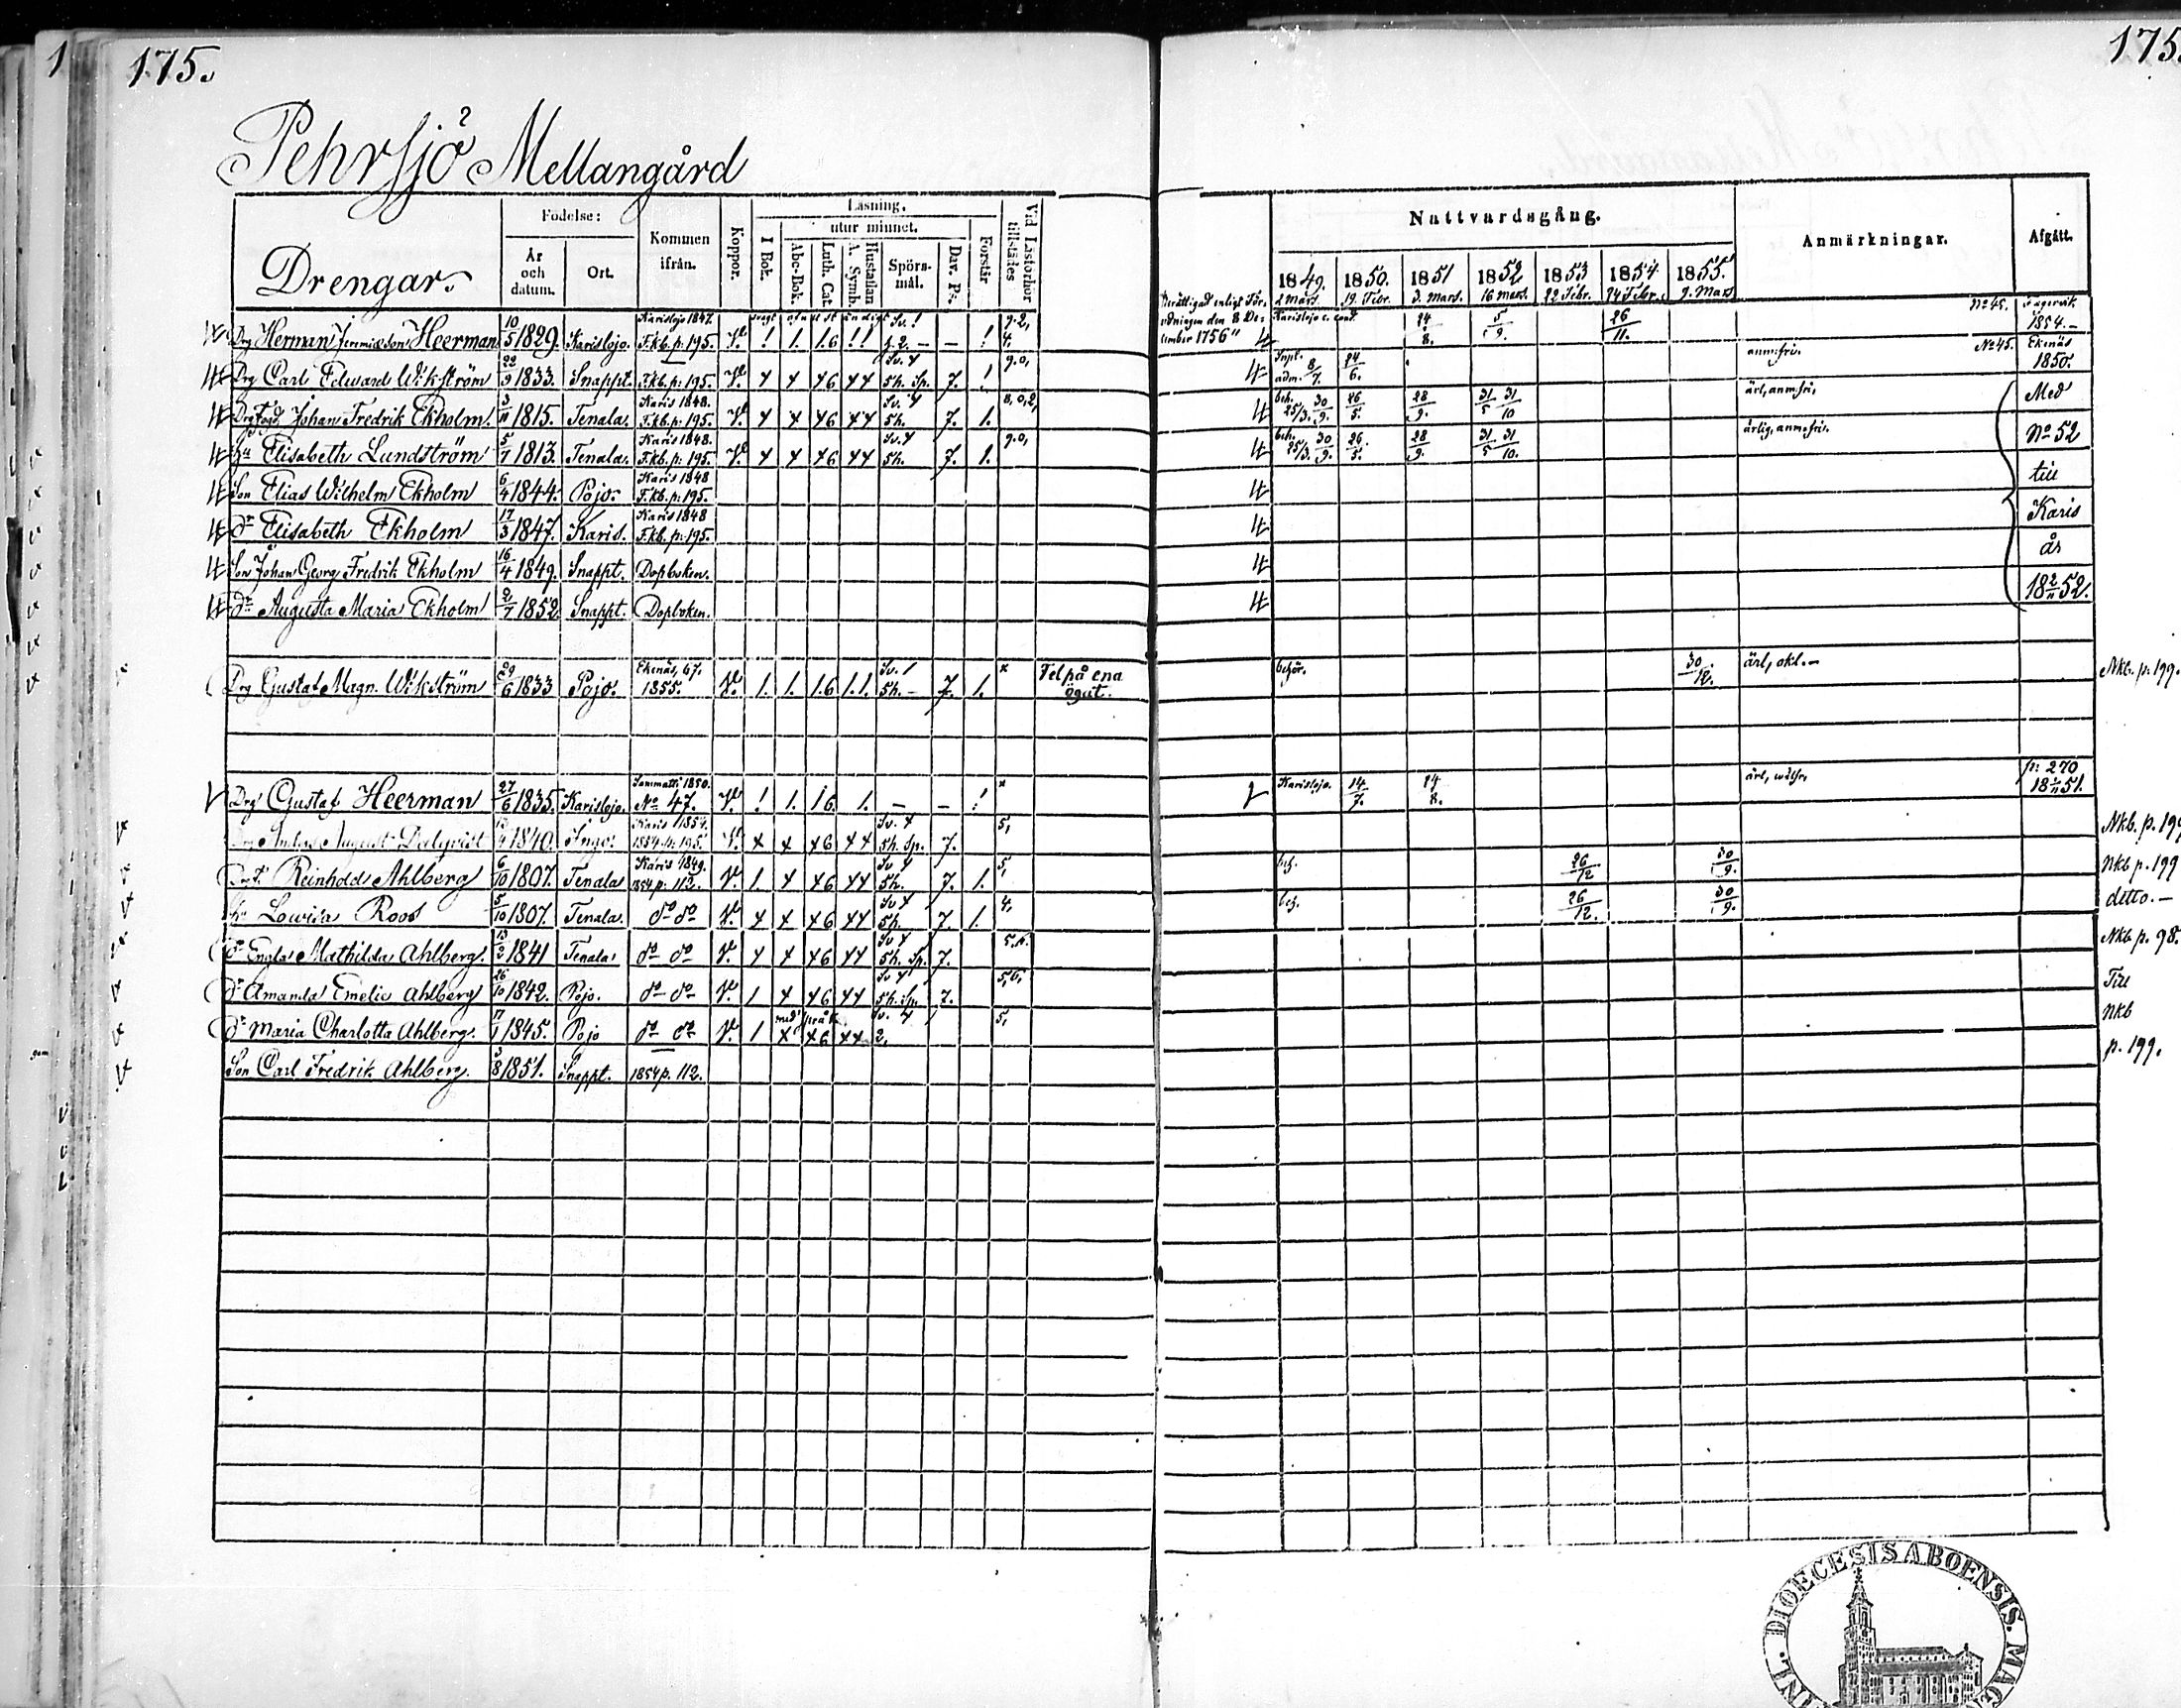 1
175.
175.
Pehrsjö Mellangård
Drengar.
Födelse:
År och datum.
Ort.
Kommen ifrån.
Koppor.
Läsning.
I Bok.
utur minnet.
Abc-Bok.
Luth. Cat.
A. Symb.
Hustaflan
Spörs-mål.
Dav. Ps.
Förstår
Vid Läsförhör tillstädes
Nattvardsgång.
1849. 1850. 1851 1852 1853 1854 1855.
2 Mars. 19. Febr. 3. Mars. 16 Mars. 22 Febr. 24 Febr. 9. Mars
Anmärkningar.
Afgått.
Drg Herman Jeremiæ son Heerman 10/5 1829. Karislojo. Karislojo 1847. F.kb. p: 195. V. ! 1. 1.6 !! Sv. ! - - ! 9.2, 4.
Berättigad enligt För-ordningen den 8 De-cember 1756" Karislojo c. cond. 24/8. 5/9. 26/11. No 45. Fagervik 1854.-
Drg Carl Edward Wikström 22/9 1833. Snappt. F.kb. p: 195. V. 4 4 46 44 Sv. 4 5h. Sp. 7. ! 9.0,
adm. 8/7. 24/6. anm:fri. No 45. Ekenäs 1850.
Drg Fogd Johan Fredrik Ekholm. 3/11 1815. Tenala. Karis 1848. F.kb. p: 195. V. 4 4 46 44 Sv. 4 5h. 7. 1. 8,0,2,
beh. 25/3. 30/9. 26/5. 28/9. 31/5 31/10 ärl, anm:fri, Med
Hu Elisabeth Lundström 5/7 1813. Tenala. Karis 1848. F.kb. p: 195. V. 4 4 46 44 Sv. 4 5h. 7. 1. 9.0,
beh. 25/3. 30/9. 26/5. 28/9. 31/5 31/10. ärlig, anm:fri. No 52
Son Elias Wilhelm Ekholm 6/4 1844. Pojo. Karis 1848 F.kb. p: 195. till
dr Elisabeth Ekholm 17/3 1847. Karis. Karis 1848 F.kb. p: 195. Karis
Son Johan Georg Fredrik Ekholm 16/4 1849. Snappt. Dopboken. år
dr Augusta Maria Ekholm 2/7 1852 Snappt. Dopboken. 18 2/11 52.
Drg Gustaf Magn. Wikström 29/6 1833 Pojo. Ekenäs, 67. 1855. V. 1. 1. 1.6 1.1. Sv. 1 5h. - 7. 1. x Fel på ena ögat.
behör. 30/12. ärl, okl.- Nkb. p. 199.
Drg Gustaf Heerman 27/6 1835. Karislojo. Sammatti 1850. No 47. V. ! 1. 1.6. 1. - - ! x
Karislojo. 14/7. 24/8. ärl, p: 270 18 51.
Drg August Dalqvist 1840. Ingo. Karis 1854. 1854 p: 195. V. x x x6 xx Sv. 4 5h. Sp. 7. 5, Nkb. p. 199
Reinhold Ahlberg 6/10 1807. Tenala Karis 1849. 1854 p: 112. V. 1. 4 46 44 Sv 4 5h. 7. 1. 5,
beh. 26/12 30/9. Nkb p. 199
hu Lovisa Roos 5/10 1807. Tenala. do do V. x x x6 44 Sv 4 5h. 7. 1. 4,
beh. 26/12. 30/9. detto.-
dr Engla Mathilda Ahlberg. 13/2 1841 Tenala do do V. 4 4 46 44 Sv 4 5h. Sp. 7. Nkb p. 98.
dr Amanda Emelie Ahlberg 26/10 1842. Pojo. do do V. 1 4 46 44 Sv 4 5h. Sp. 7. 5,6, Till
dr Maria Charlotta Ahlberg. 17/1 1845. Pojo do do V. 1 x x6 xx 2. Sv. 4 5, Nkb
Son Carl Fredrik Ahlberg. 3/8 1851. Snappt. 1854 p. 112. p. 199.
DIOECESIS ABOENSIS.